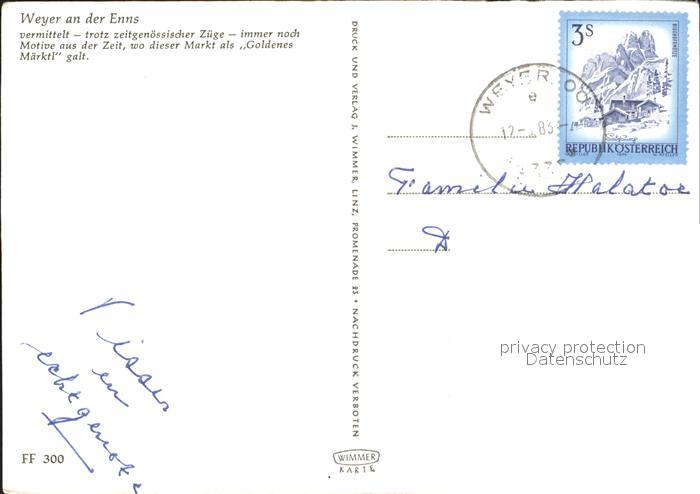 Weyer an der Enns
vermittelt — trotz zeitgenössischer Züge — immer noch
Motive aus der Zeit, wo dieser Markt als „Goldenes
Märktl" galt.
DRUCK UND VERLAG J. WIMMER, LINZ, PROMENADE 23 • NACHDRUCK VERBOTEN
3S
REPUBLIK ÖSTERREICH
WEYER, OÖ
e
Familie
privacy protection
Datenschutz
Visser
en
echtgenote
FF 300
WIMMER
KARTE